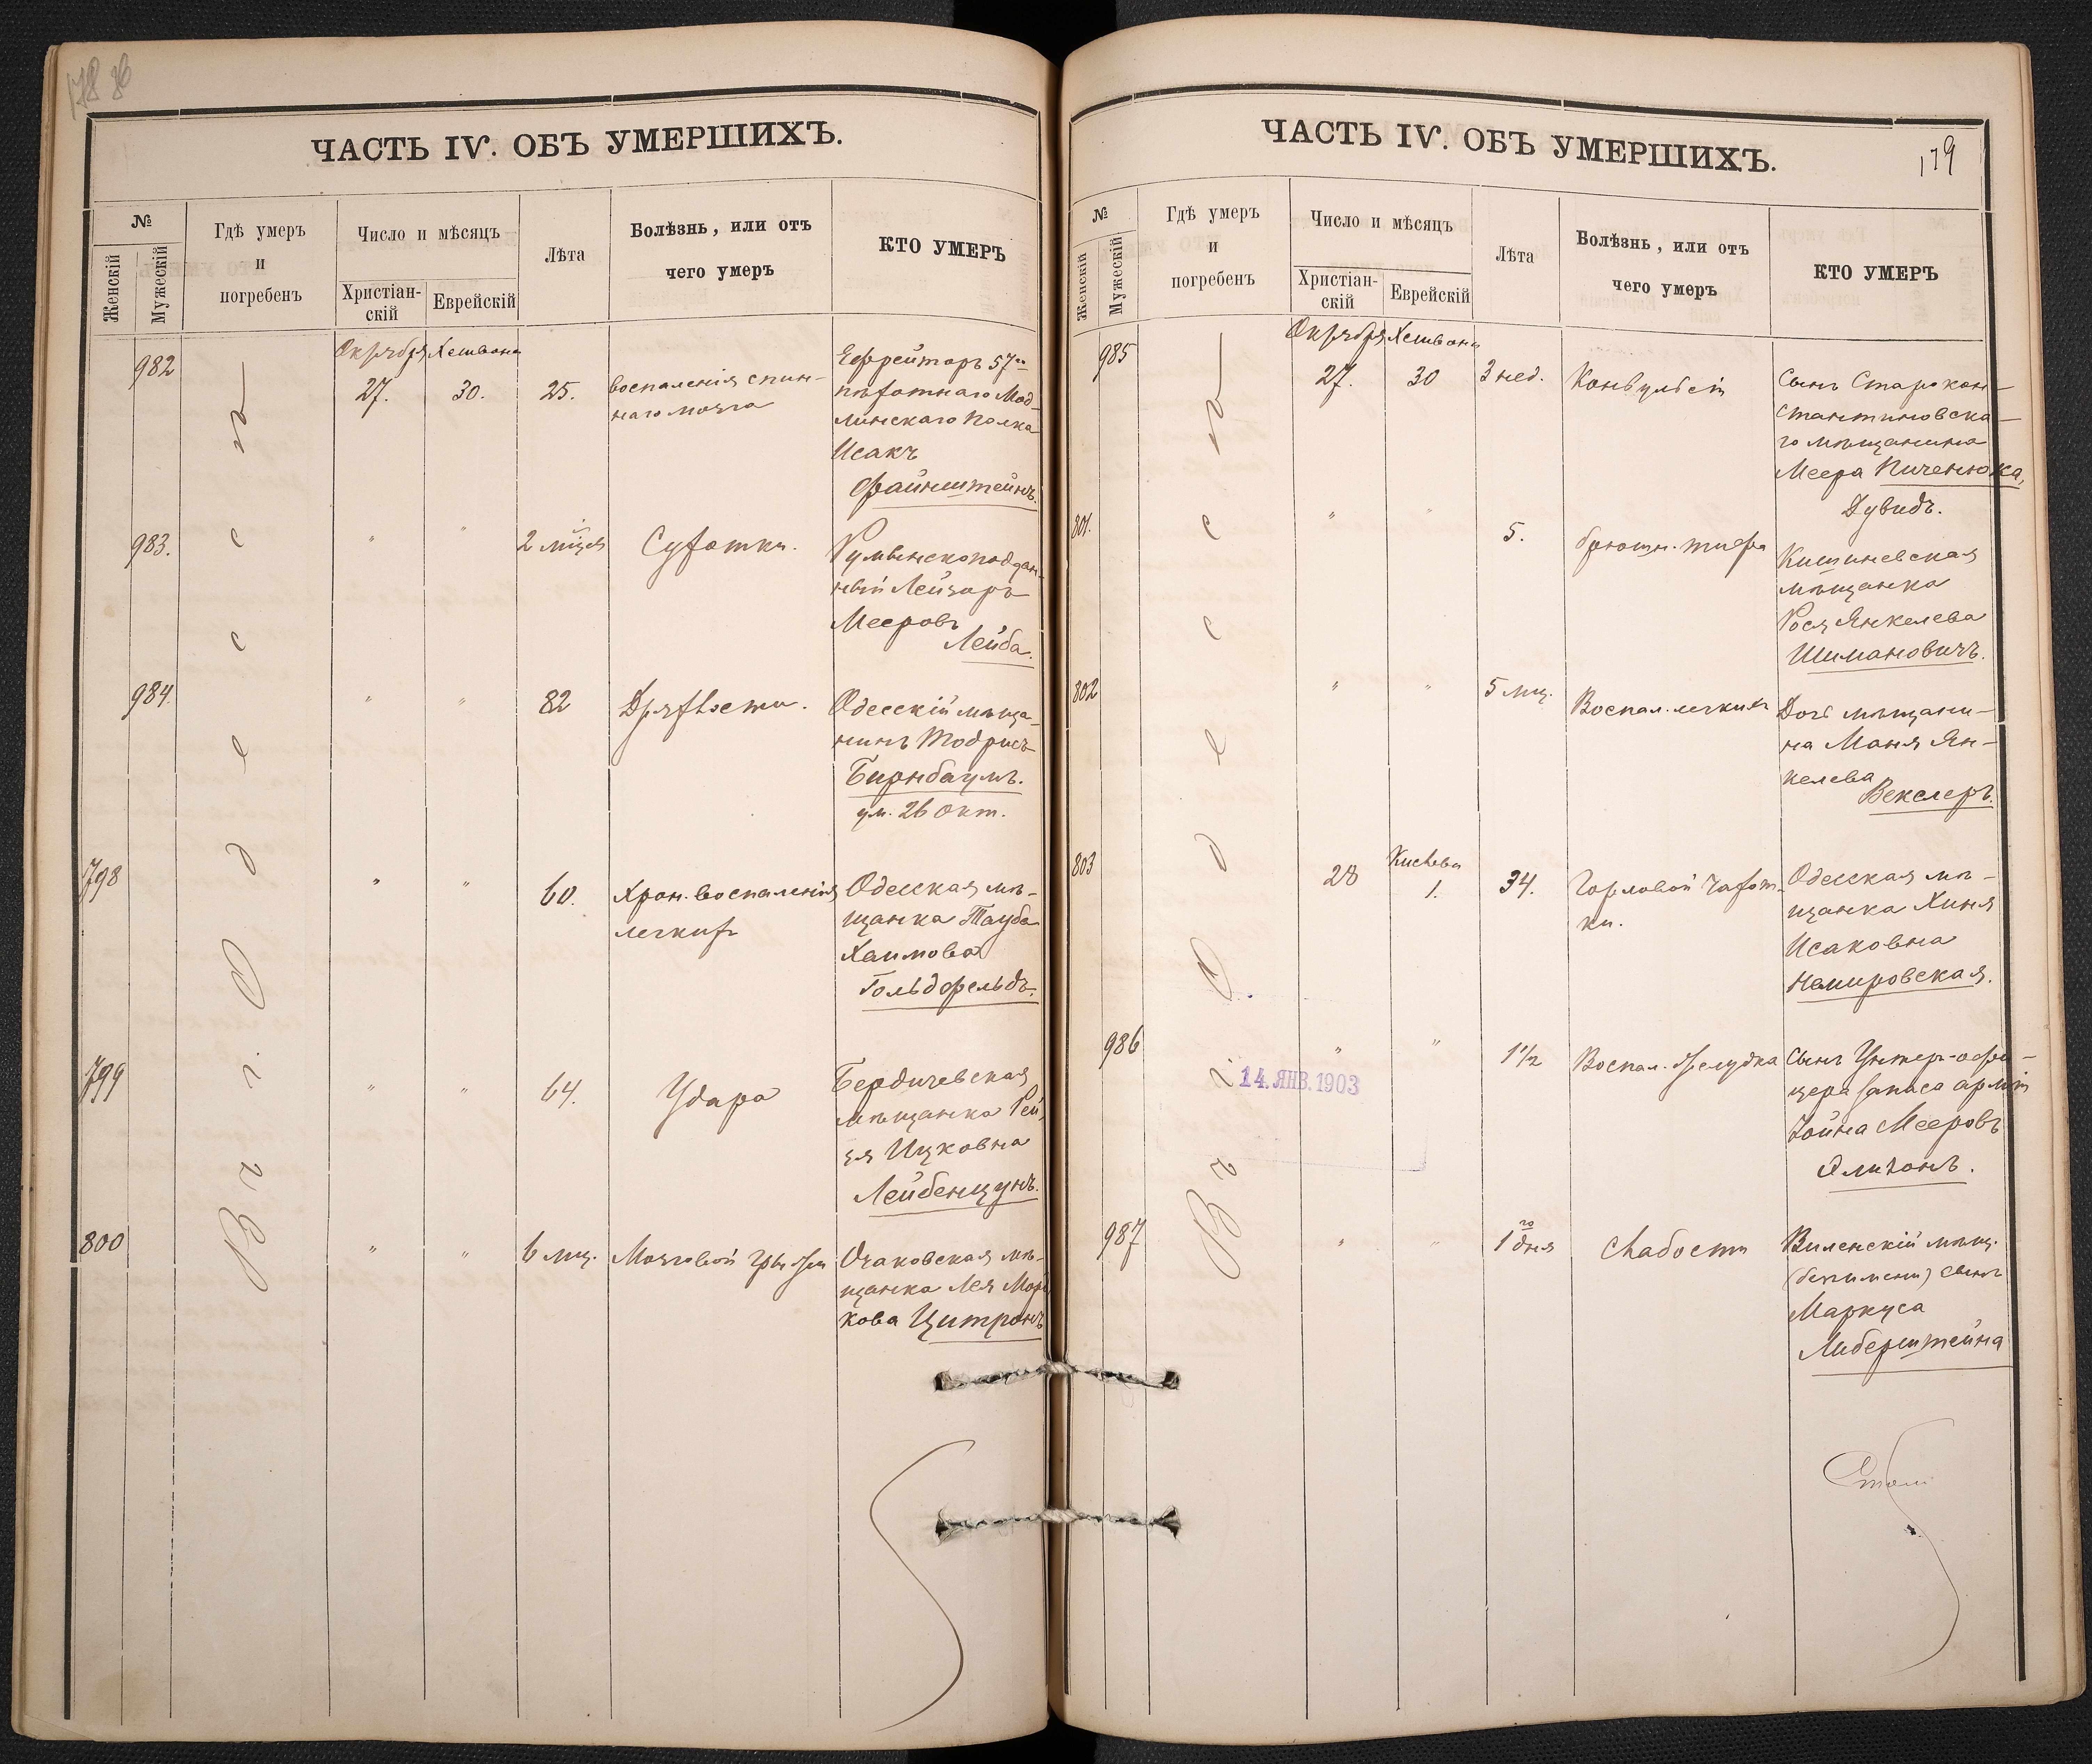 178 об
ЧАСТЬ IV. ОБЪ УМЕРШИХЪ.
№
Женскій
Мужескій
Гдѣ умеръ
и
погребенъ
Число и мѣсяцъ
Христіан-
скій
Еврейскій
Лѣта
Болѣзнь, или отъ
чего умеръ
КТО УМЕРЪ
Въ г. Одессѣ
Октября Хешвона
982
27.
30.
25.
воспаленія спин-
наго мозга
Ефрейторъ 57го
пѣхотнаго Мод-
линскаго Полка
Исакъ
Файнштейнъ.
983.
"
"
2 мѣся
Сухотки.
Румынскоподдан-
ный Лейзоръ
Мееровъ
Лейба.
984.
"
"
82
Дряхлости.
Одесскій мѣща-
нинъ Тодрисъ
Бирнбаумъ.
ум. 26 Окт.
798
"
"
60.
Хрон. воспаленія
легкихъ
Одесская мѣ-
щанка Тауба
Хаимова
Гольдфельдъ.
799
"
"
64.
Удара
Бердичевская
мѣщанка Рей-
зя Ицковна
Лейбенцунъ.
800
"
"
6 мц.
Мозговой грыжи
Очаковская мѣ-
щанка Лея Мор-
кова Цитронъ
ЧАСТЬ IV. ОБЪ УМЕРШИХЪ.
179
№
Женскій
Мужескій
Гдѣ умеръ
и
погребенъ
Число и мѣсяцъ
Христіан-
скій
Еврейскій
Лѣта
Болѣзнь, или отъ
чего умеръ
КТО УМЕРЪ
Въ г. Одессѣ
Октября Хешвона
985
27.
30
3 нед.
Конвульсіи
Сынъ Старокон-
стантиновска-
го мѣщанина
Меера Пиченюка,
Дувидъ.
801.
"
"
5.
брюшн. тифа
Кишиневская
мѣщанка
Рося Янкелева
Шимановичъ.
802
"
"
5 мц.
Воспал. легкихъ
Дочь мѣщани-
на Маня Ян-
келева
Векслеръ.
803
28
Кислева
1.
34.
Горловой чахот-
ки.
Одесская мѣ-
щанка Хиня
Исаковна
Немировская.
986
"
"
1 1/2
Воспал. желудка
Сынъ Унтеръ-офи-
цера запаса арміи
Хойна Мееровъ
14. ЯНВ. 1903
987
"
"
1го дня
Слабости
Виленскій мѣщ.
(безъ имени) сынъ
Маркуса
Либерштейна